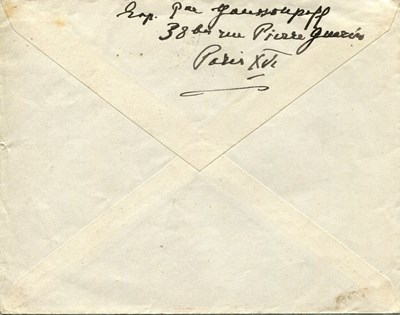 Exp. Pce Youssoupoff
38 bis rue Pierre Guérin
Paris XVI